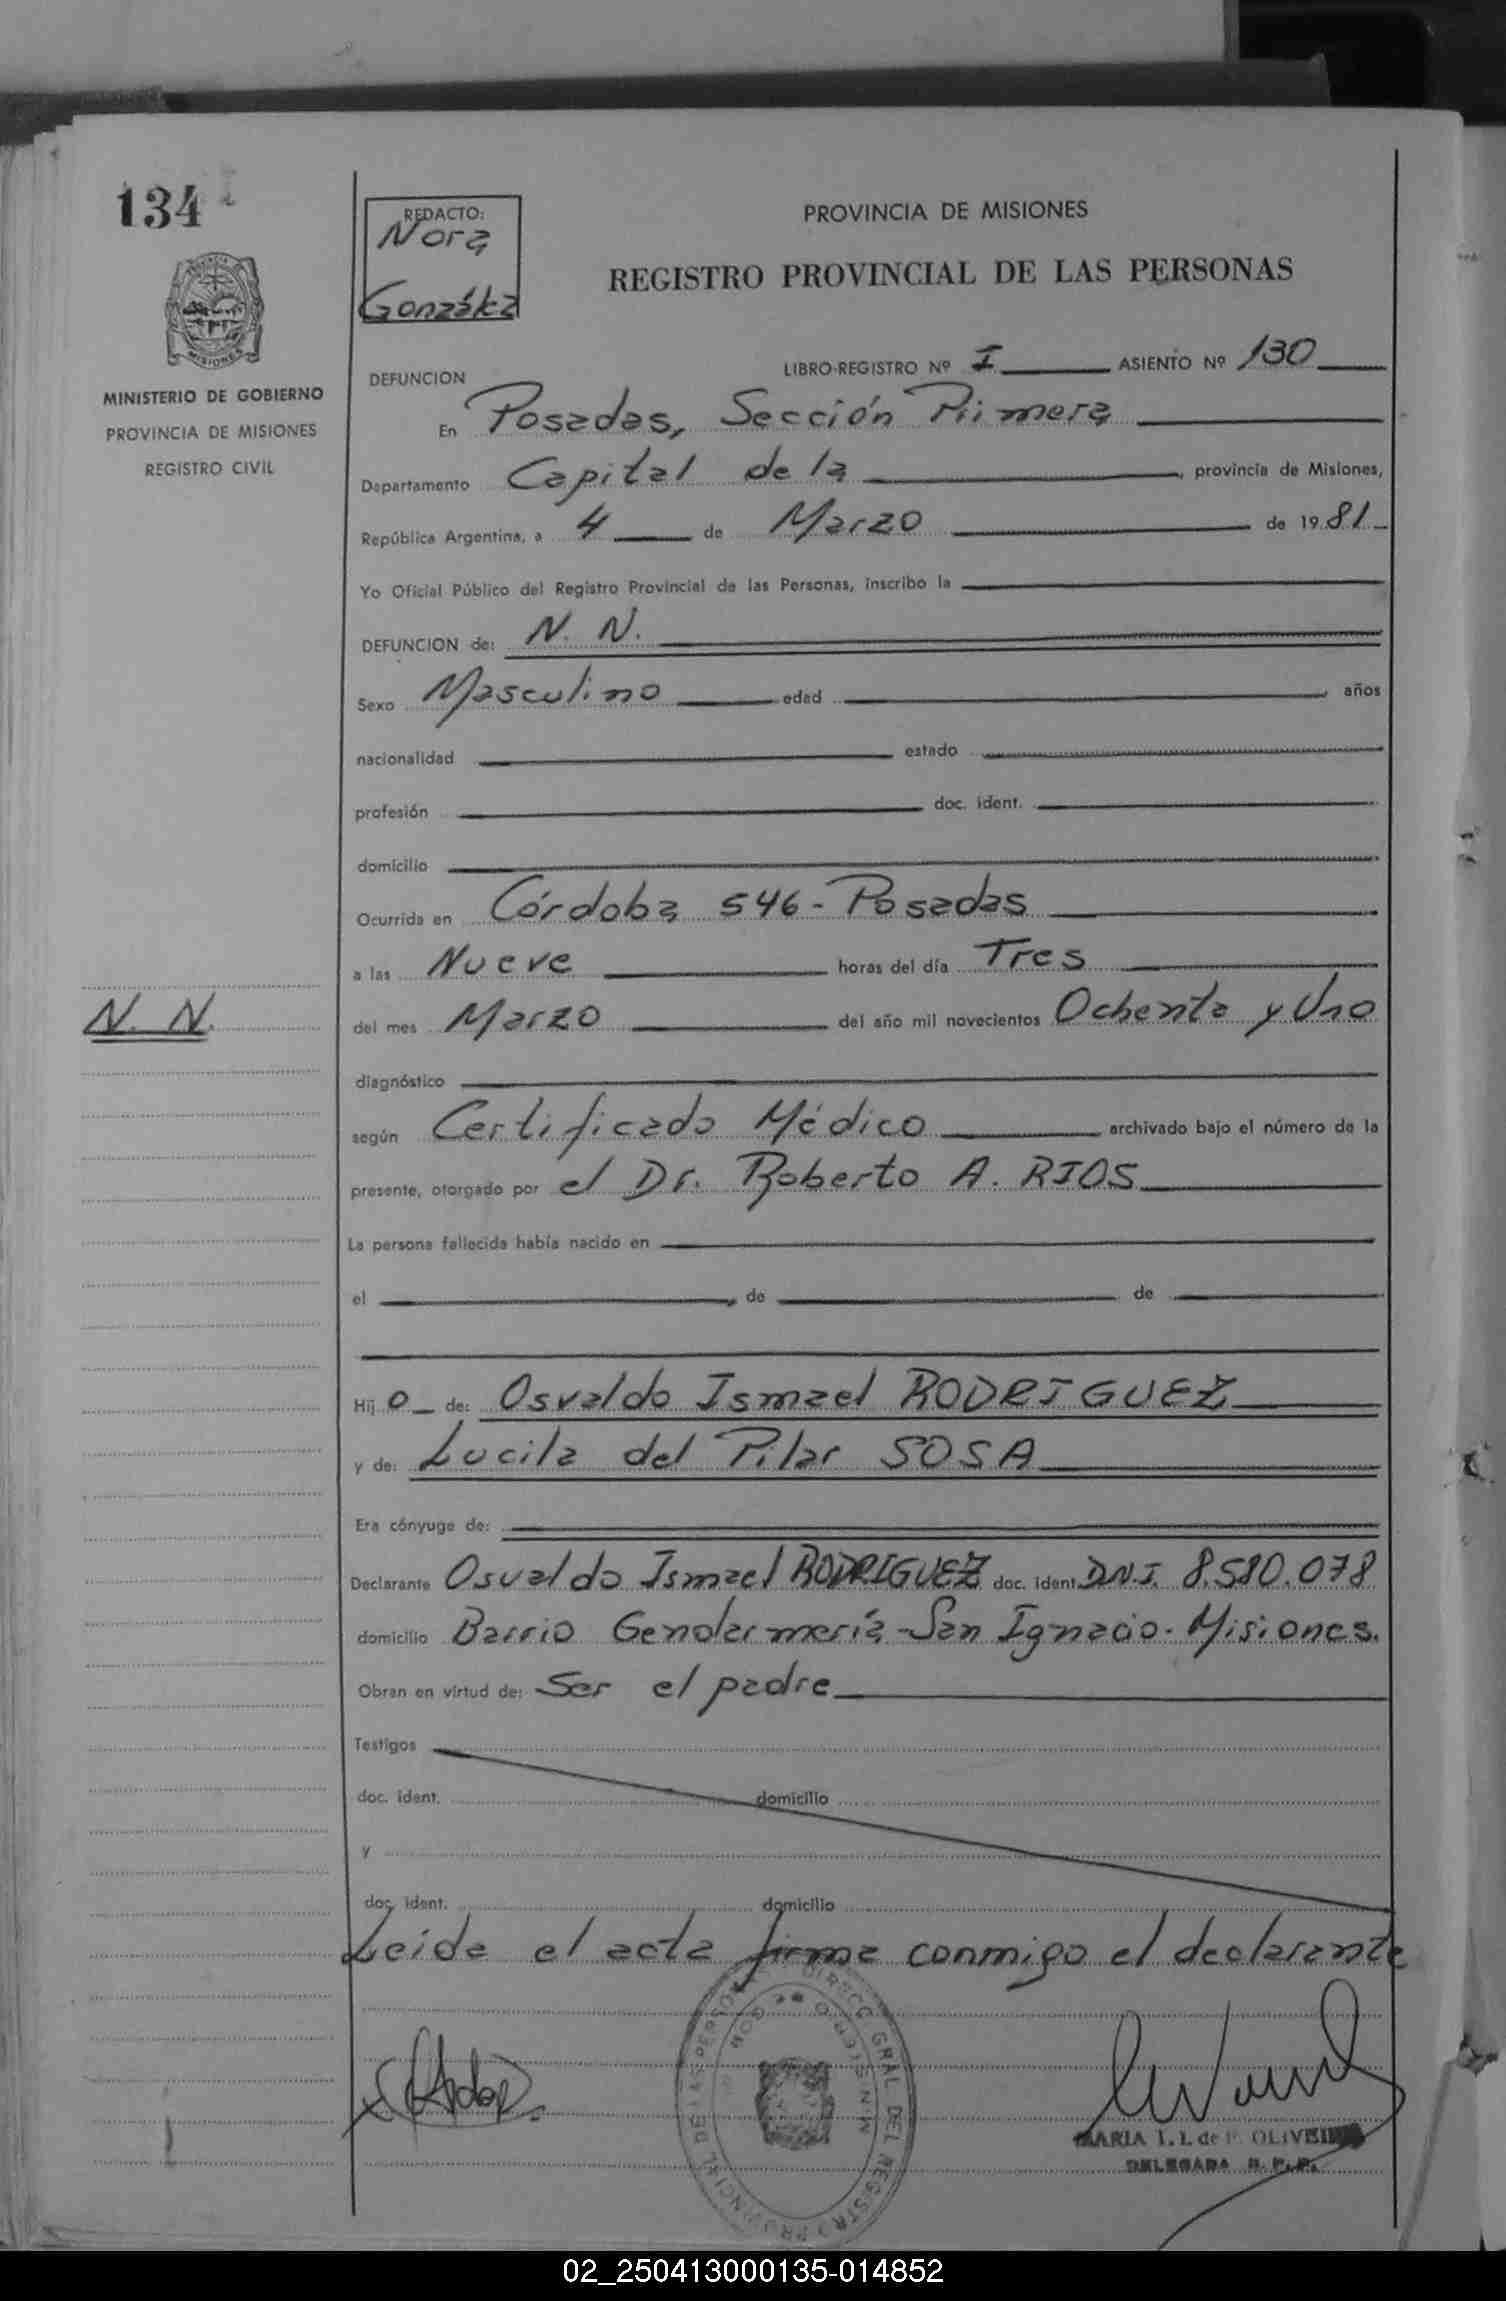 134
REDACTO:
Nora
González
PROVINCIA DE MISIONES
REGISTRO PROVINCIAL DE LAS PERSONAS
MISIONES
MINISTERIO DE GOBIERNO
PROVINCIA DE MISIONES
REGISTRO CIVIL
DEFUNCION LIBRO-REGISTRO Nº I ASIENTO Nº 130
En Posadas, Sección Primera
Departamento Capital de la, provincia de Misiones,
República Argentina, a 4 de Marzo de 1981
Yo Oficial Público del Registro Provincial de las Personas, inscribo la
DEFUNCION de: N. N.
Sexo Masculino edad, años
nacionalidad estado
profesión doc. ident.
domicilio
Ocurrida en Córdoba 546 - Posadas
a las Nueve horas del día Tres
N. N.
del mes Marzo del año mil novecientos Ochenta y Uno
diagnóstico
según Certificado Médico archivado bajo el número de la
presente, otorgado por el Dr. Roberto A. RIOS
La persona fallecida había nacido en
el, de de
Hijo de: Osvaldo Ismael RODRIGUEZ
y de: Lucila del Pilar SOSA
Era cónyuge de:
Declarante Osvaldo Ismael RODRIGUEZ doc. ident. D.N.I. 8.580.078
domicilio Barrio Gendarmería - San Ignacio - Misiones.
Obran en virtud de: Ser el padre
Testigos
doc. ident. domicilio
y
doc. ident. domicilio
Leída el acta firma conmigo el declarante
DIRECC GRAL DEL REGISTRO PROVINCIAL DE LAS PERSONAS
MINISTERIO GOB
MARIA I. I. de F. OLIVEIRA
DELEGADA R. P. P.
02_250413000135-014852